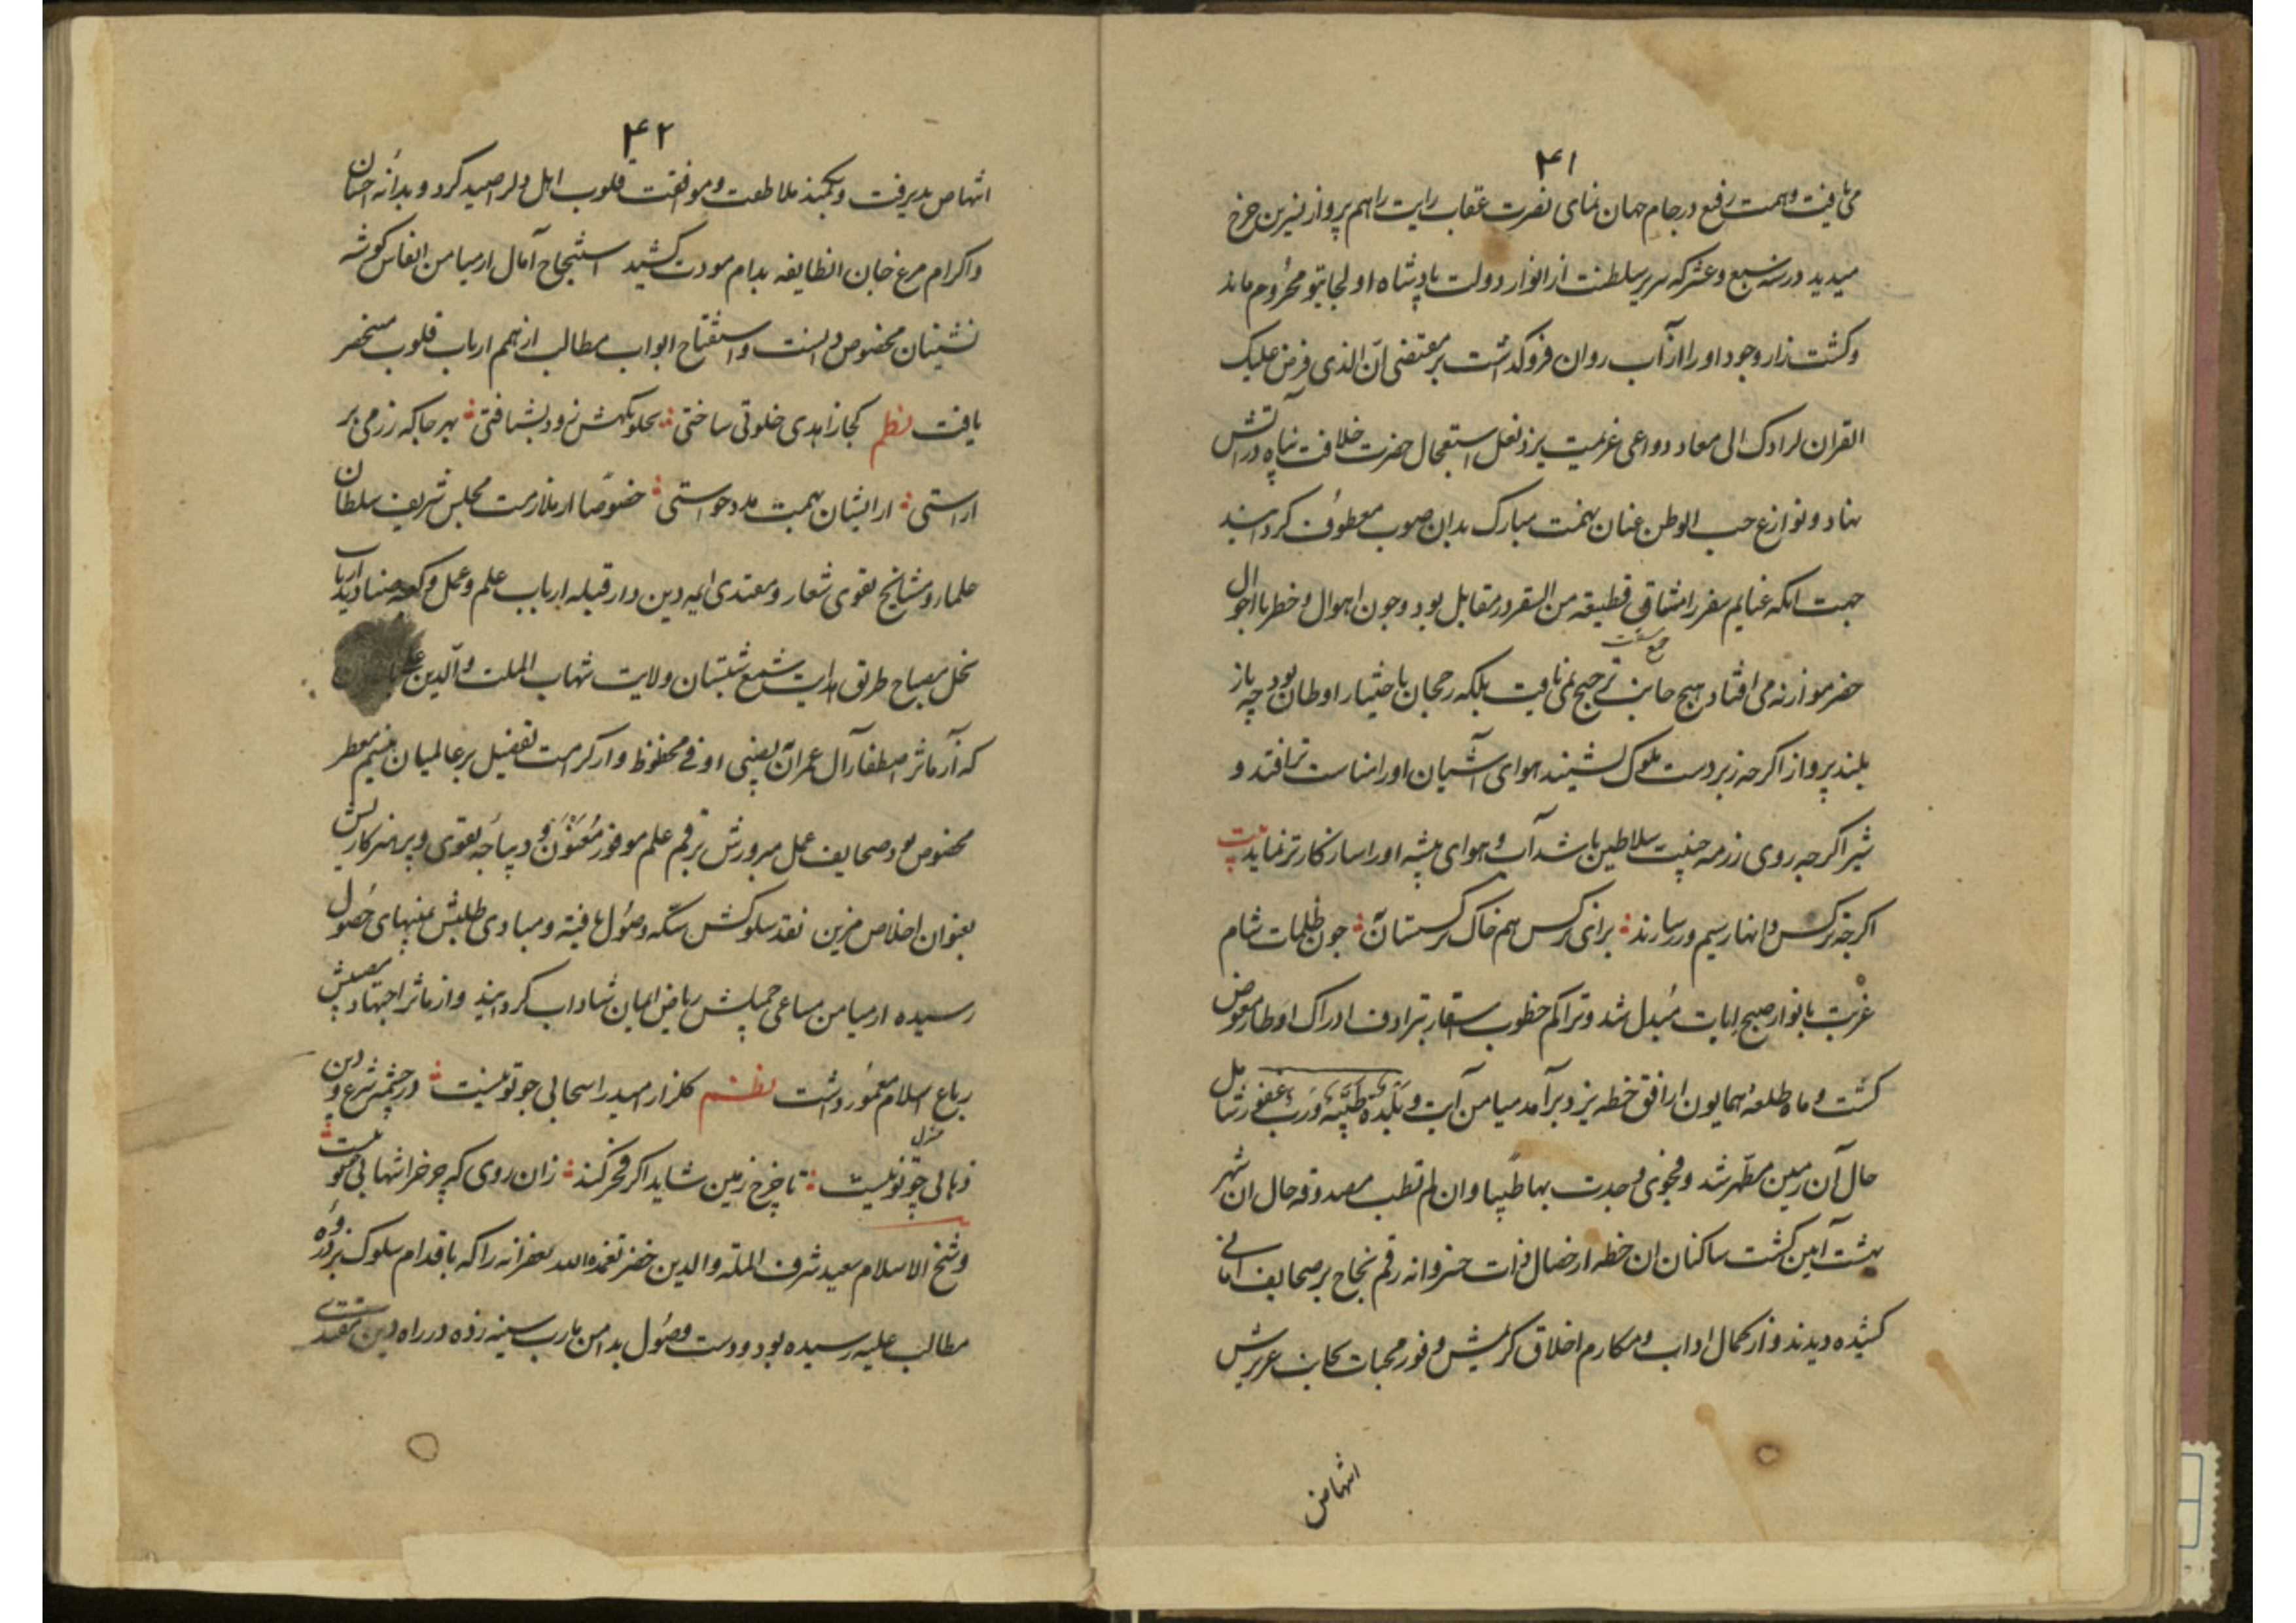 ۴۱
می‌یافت و همت رفیع در جام جهان نمای نصرت عقاب رایت را هم پرواز نسرین چرخ
میدید در سنه سبع و عشر که سریر سلطنت از انوار دولت پادشاه اولجایتو محروم ماند
وکشت زار وجود او را از آب روان فرو گذاشت بر مقتضی ان الذی فرض علیک
القران لرادک الی معاد دواعی عزیمت یزد نعل استعجال حضرت خلافت پناه در آتش
نهاد و نوازع حب الوطن عنان نهمت مبارک بدان صوب معطوف کردانید
جهت انکه غنایم سفر را مشاق قطیعه من السقر در مقابل بود وچون اهوال و خطر با احوال
حضر موازنه می افتاد هیچ جانب ترجیح نمی یافت بلکه رجحان باختیار اوطان بود چه باز
بلند پرواز اکرچه زبر دست ملوک نشیند هوای آشیان او را مناسب تر افتد و
شیر اکرچه روی رزمه جنیبت سلاطین باشد آب و هوای بیشه او را سازکارتر نماید بیت
اکرچه نرکس دانها ز سیم و زر سازند ؞ برای نرکس هم خاک نرکستان به ؞ چون ظلمات شام
غربت بانوار صبح ایاب مبدل شد و تراکم خطوب اسفار بترادف ادراک اوطار معوض
کشت و ماه طلعه همایون از افق خطه یزد برآمد میامن آیت و بلدة طیبة و رب غفور شامل
حال آن زمین مطهر شد و فحوی وجدت بها طیبا وان لم تطیب مصدوقه حال ان شهر
بهشت آیین کشت ساکنان ان خطه از خصال ذات خسروانه رقم نجاح بر صحایف امانی
کشیده دیدند و از کمال اداب و مکارم اخلاق کریمش وفور محبات بجانب عزیزش
انتهاض
۴۲
انتهاض پدیرفت و بکمند ملاطفت و موافقت قلوب اهل دل را صید کرد و بدانه احسان
واکرام مرغ جان انطایفه بدام مودت کشید استنجاح آمال از میامن انفاس کوشه
نشینان مخصوص دانست و استفتاح ابواب مطالب از همم ارباب قلوب منحصر
یافت نظم کجا زاهدی خلوتی ساختی ؞ بخلوتکهش زود بشتافتی ؞ بهر جا که رزمی بر
اراستی ؞ از ایشان بهمت مدد خواستی ؞ خصوصا از ملازمت مجلس شریف سلطان
علما و مشایخ تقوی شعار و مقتدی ایمه دین دار قبله ارباب علم و عمل و کعبه صنادید ارباب
نحل مصباح طریق هدایت شمع شبستان ولایت شهاب الملت والدین
که از ماثر اصطفا آل عمران بنصیبی اوفی محظوظ و از کرامت تفضیل بر عالمیان بنسیم معطر
مخصوص بود صحایف عمل مبرورش برقم علم موفور معنون و دیباجه تقوی و پرهیزکاریش
بعنوان اخلاص مزین نقد سلوکش سکه وصول یافته و مبادی طلبش بمنتهای حصول
رسیده از میامن مساعی جمیلش ریاض ایمان شاداب کردانید و از ماثر اجتهاد
رباع اسلام معمور داشت نظم کلزار امید را سحابی چو تو نیست ؞ در چشمه شرع و دین
ذهابی چو تو نیست ؞ تا چرخ زمین شاید اکر فخر کند ؞ زان روی که چرخ را شهابی چو تو نیست ؞
منزل
وشیخ الاسلام سعید شرف الملة والدین خضر تغمده الله بغفرانه را که باقدام سلوک بر ذروه
مطالب علیه رسیده بود و دست وصول بدامن یارب سینه زده در راه دین مقتدی